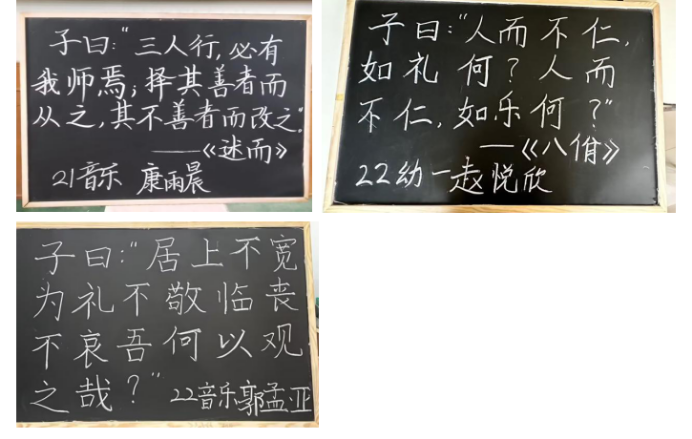 子曰:“三人行,必有
我师焉;择其善者而
从之,其不善者而改之。”
——《述而》
21音乐 康雨晨
子曰:“人而不仁,
如礼何?人而
不仁,如乐何?”
——《八佾》
22幼一赵悦欣
子曰:“居上不宽
为礼不敬临丧
不哀吾何以观
之哉?”22音乐郭孟亚